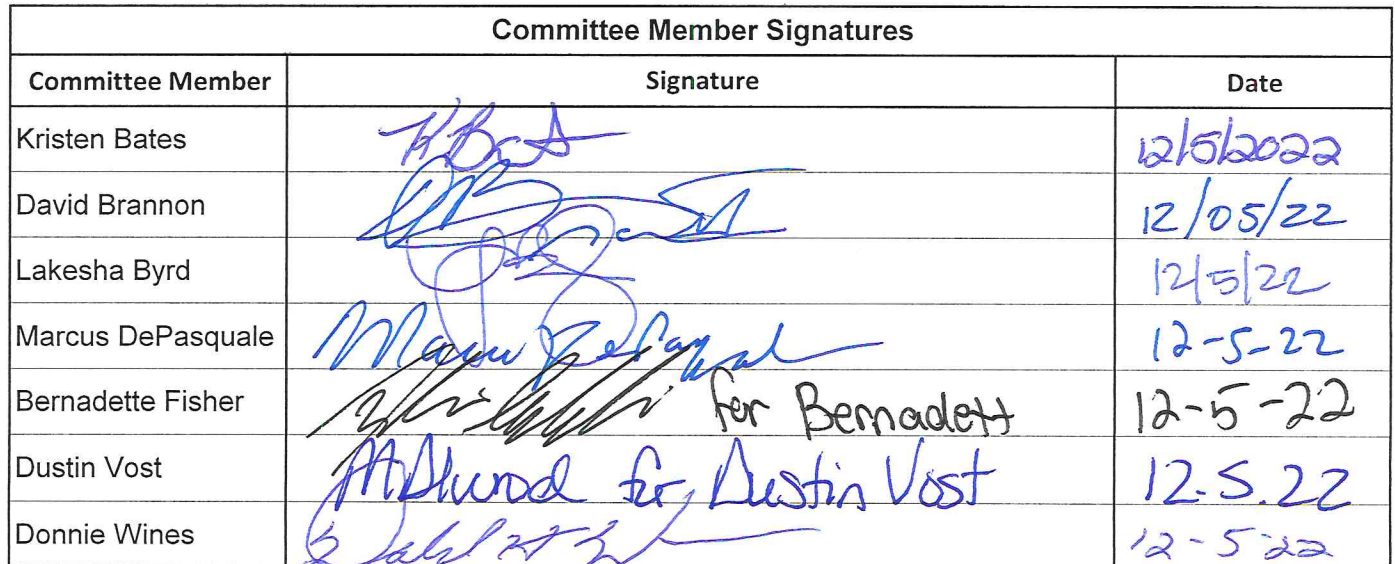 Committee Member Signatures
Committee Member Signature Date
Kristen Bates 12/5/2022
David Brannon 12/05/22
Lakesha Byrd 12/5/22
Marcus DePasquale 12-5-22
Bernadette Fisher for Bernadett 12-5-22
Dustin Vost for Dustin Vost 12.5.22
Donnie Wines 12-5-22